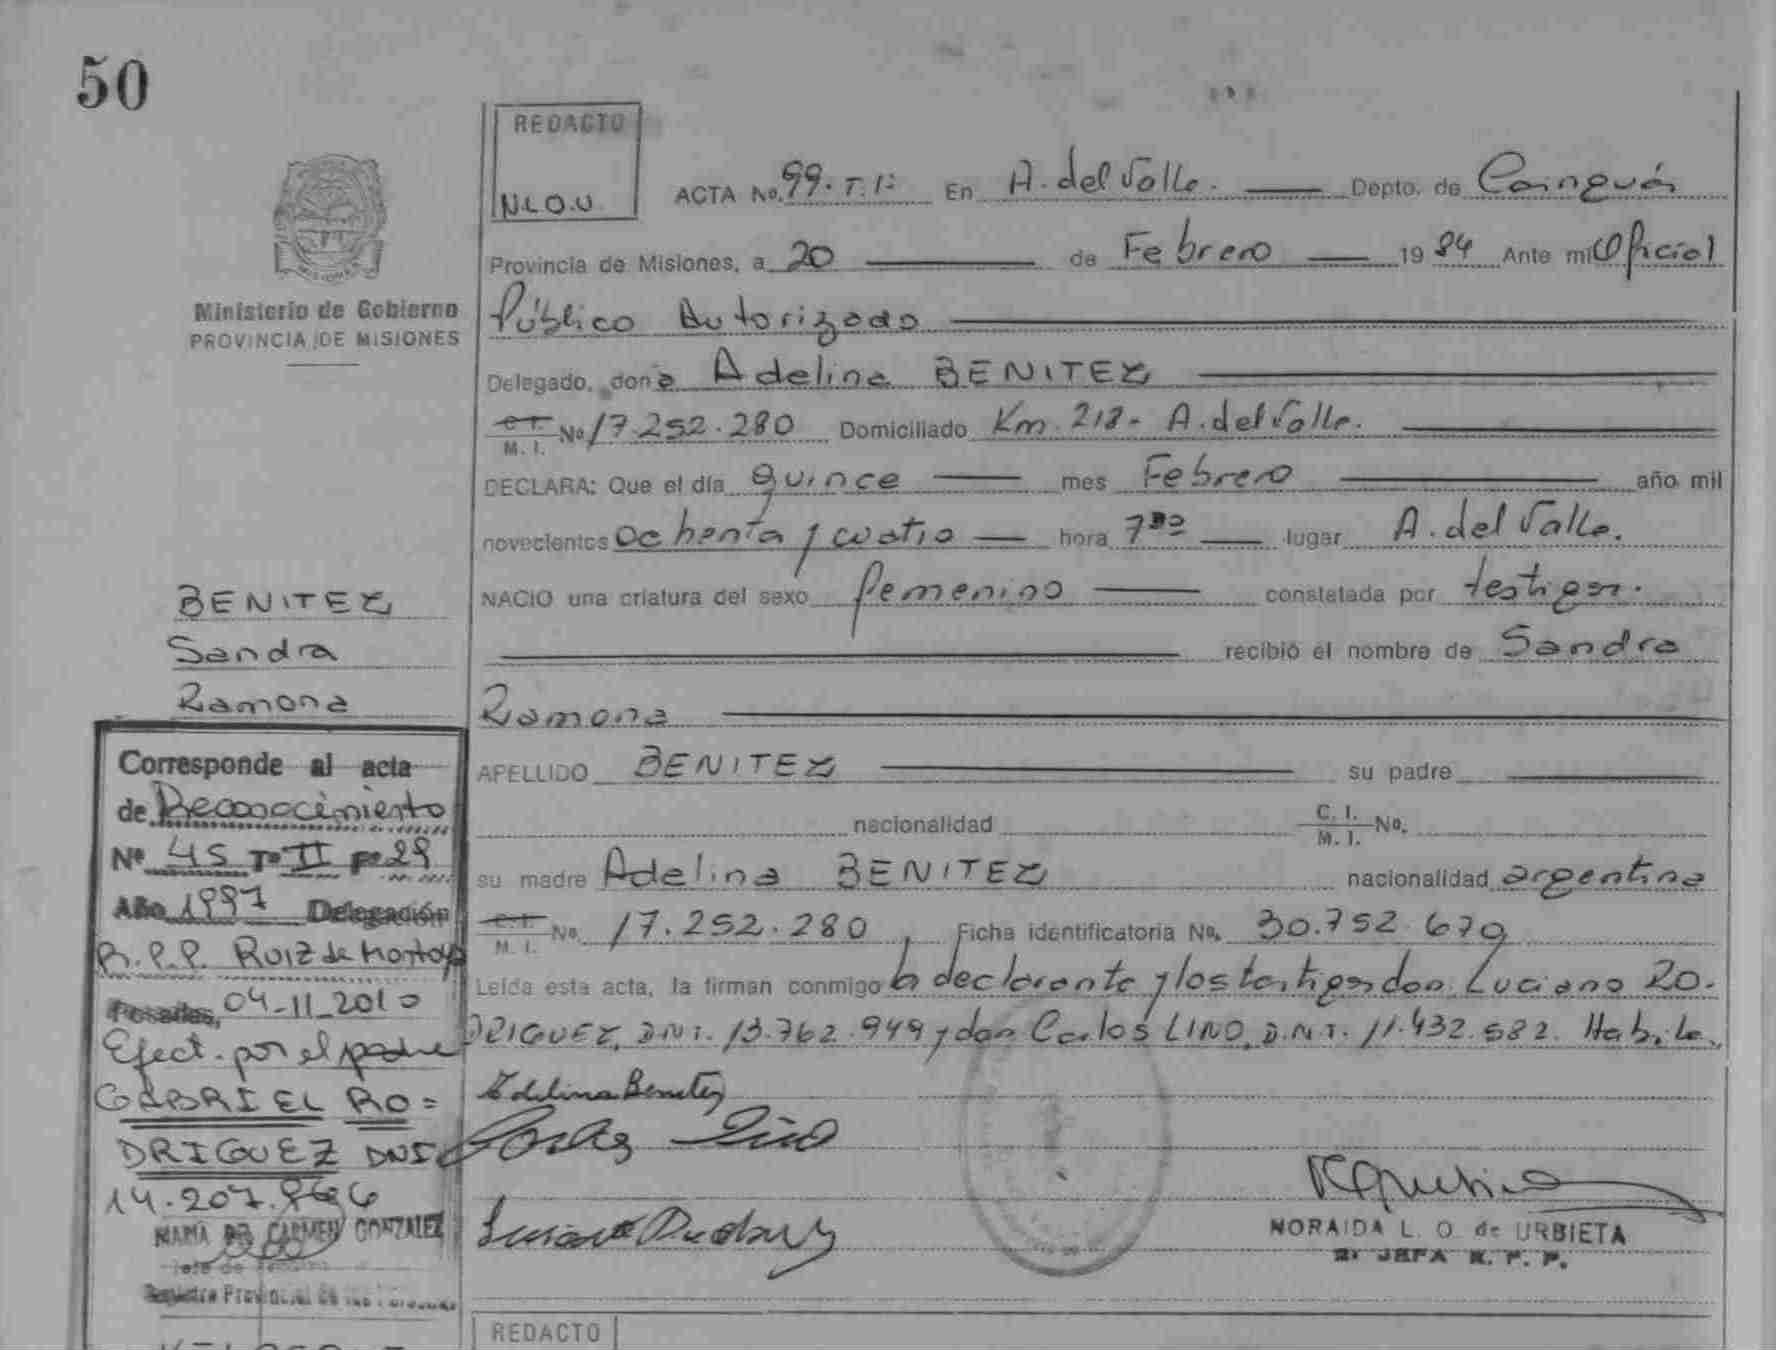 50
REDACTO
N.L.O.U.
ACTA No. 99. T. 1º En A. del Valle. Depto. de Cainguás
Provincia de Misiones, a 20 de Febrero 19 84 Ante mi Oficial
Público Autorizado
Ministerio de Gobierno
PROVINCIA DE MISIONES
MISIONES
Delegado, doña Adelina BENITEZ
C. I. M. I. No 17.252.280 Domiciliado Km. 218- A. del Valle.
DECLARA: Que el día quince mes Febrero año mil
novecientos ochenta y cuatro hora 7 lugar A. del Valle.
NACIO una criatura del sexo femenino constatada por testigos.
recibió el nombre de Sandra
Ramona
APELLIDO BENITEZ su padre
nacionalidad C. I. M. I. No.
su madre Adelina BENITEZ nacionalidad argentina
C. I. M. I. No. 17.252.280, Ficha identificatoria No. 30.752.679
Leída esta acta, la firman conmigo la declarante y los testigos don Luciano RO-
DRIGUEZ, D.N.I. 13.762.949 y don Carlos LINO, D.N.I. 11.432.582. Habile.
Adelina Benitez
Carlos Lino
NORAIDA L. O. de URBIETA
JEFA R. P. P.
BENITEZ
Sandra
Ramona
Corresponde al acta
de Reconocimiento
Nº 45 Tº II Fº 29
Año 1997 Delegación
R.P.P. Ruiz de Montoya
Posadas, 04-11-2010
Efect. por el padre
GABRIEL RO=
DRIGUEZ DNI
14.207.
MARIA DEL CARMEN GONZALEZ
Registro Provincial de las Personas
REDACTO